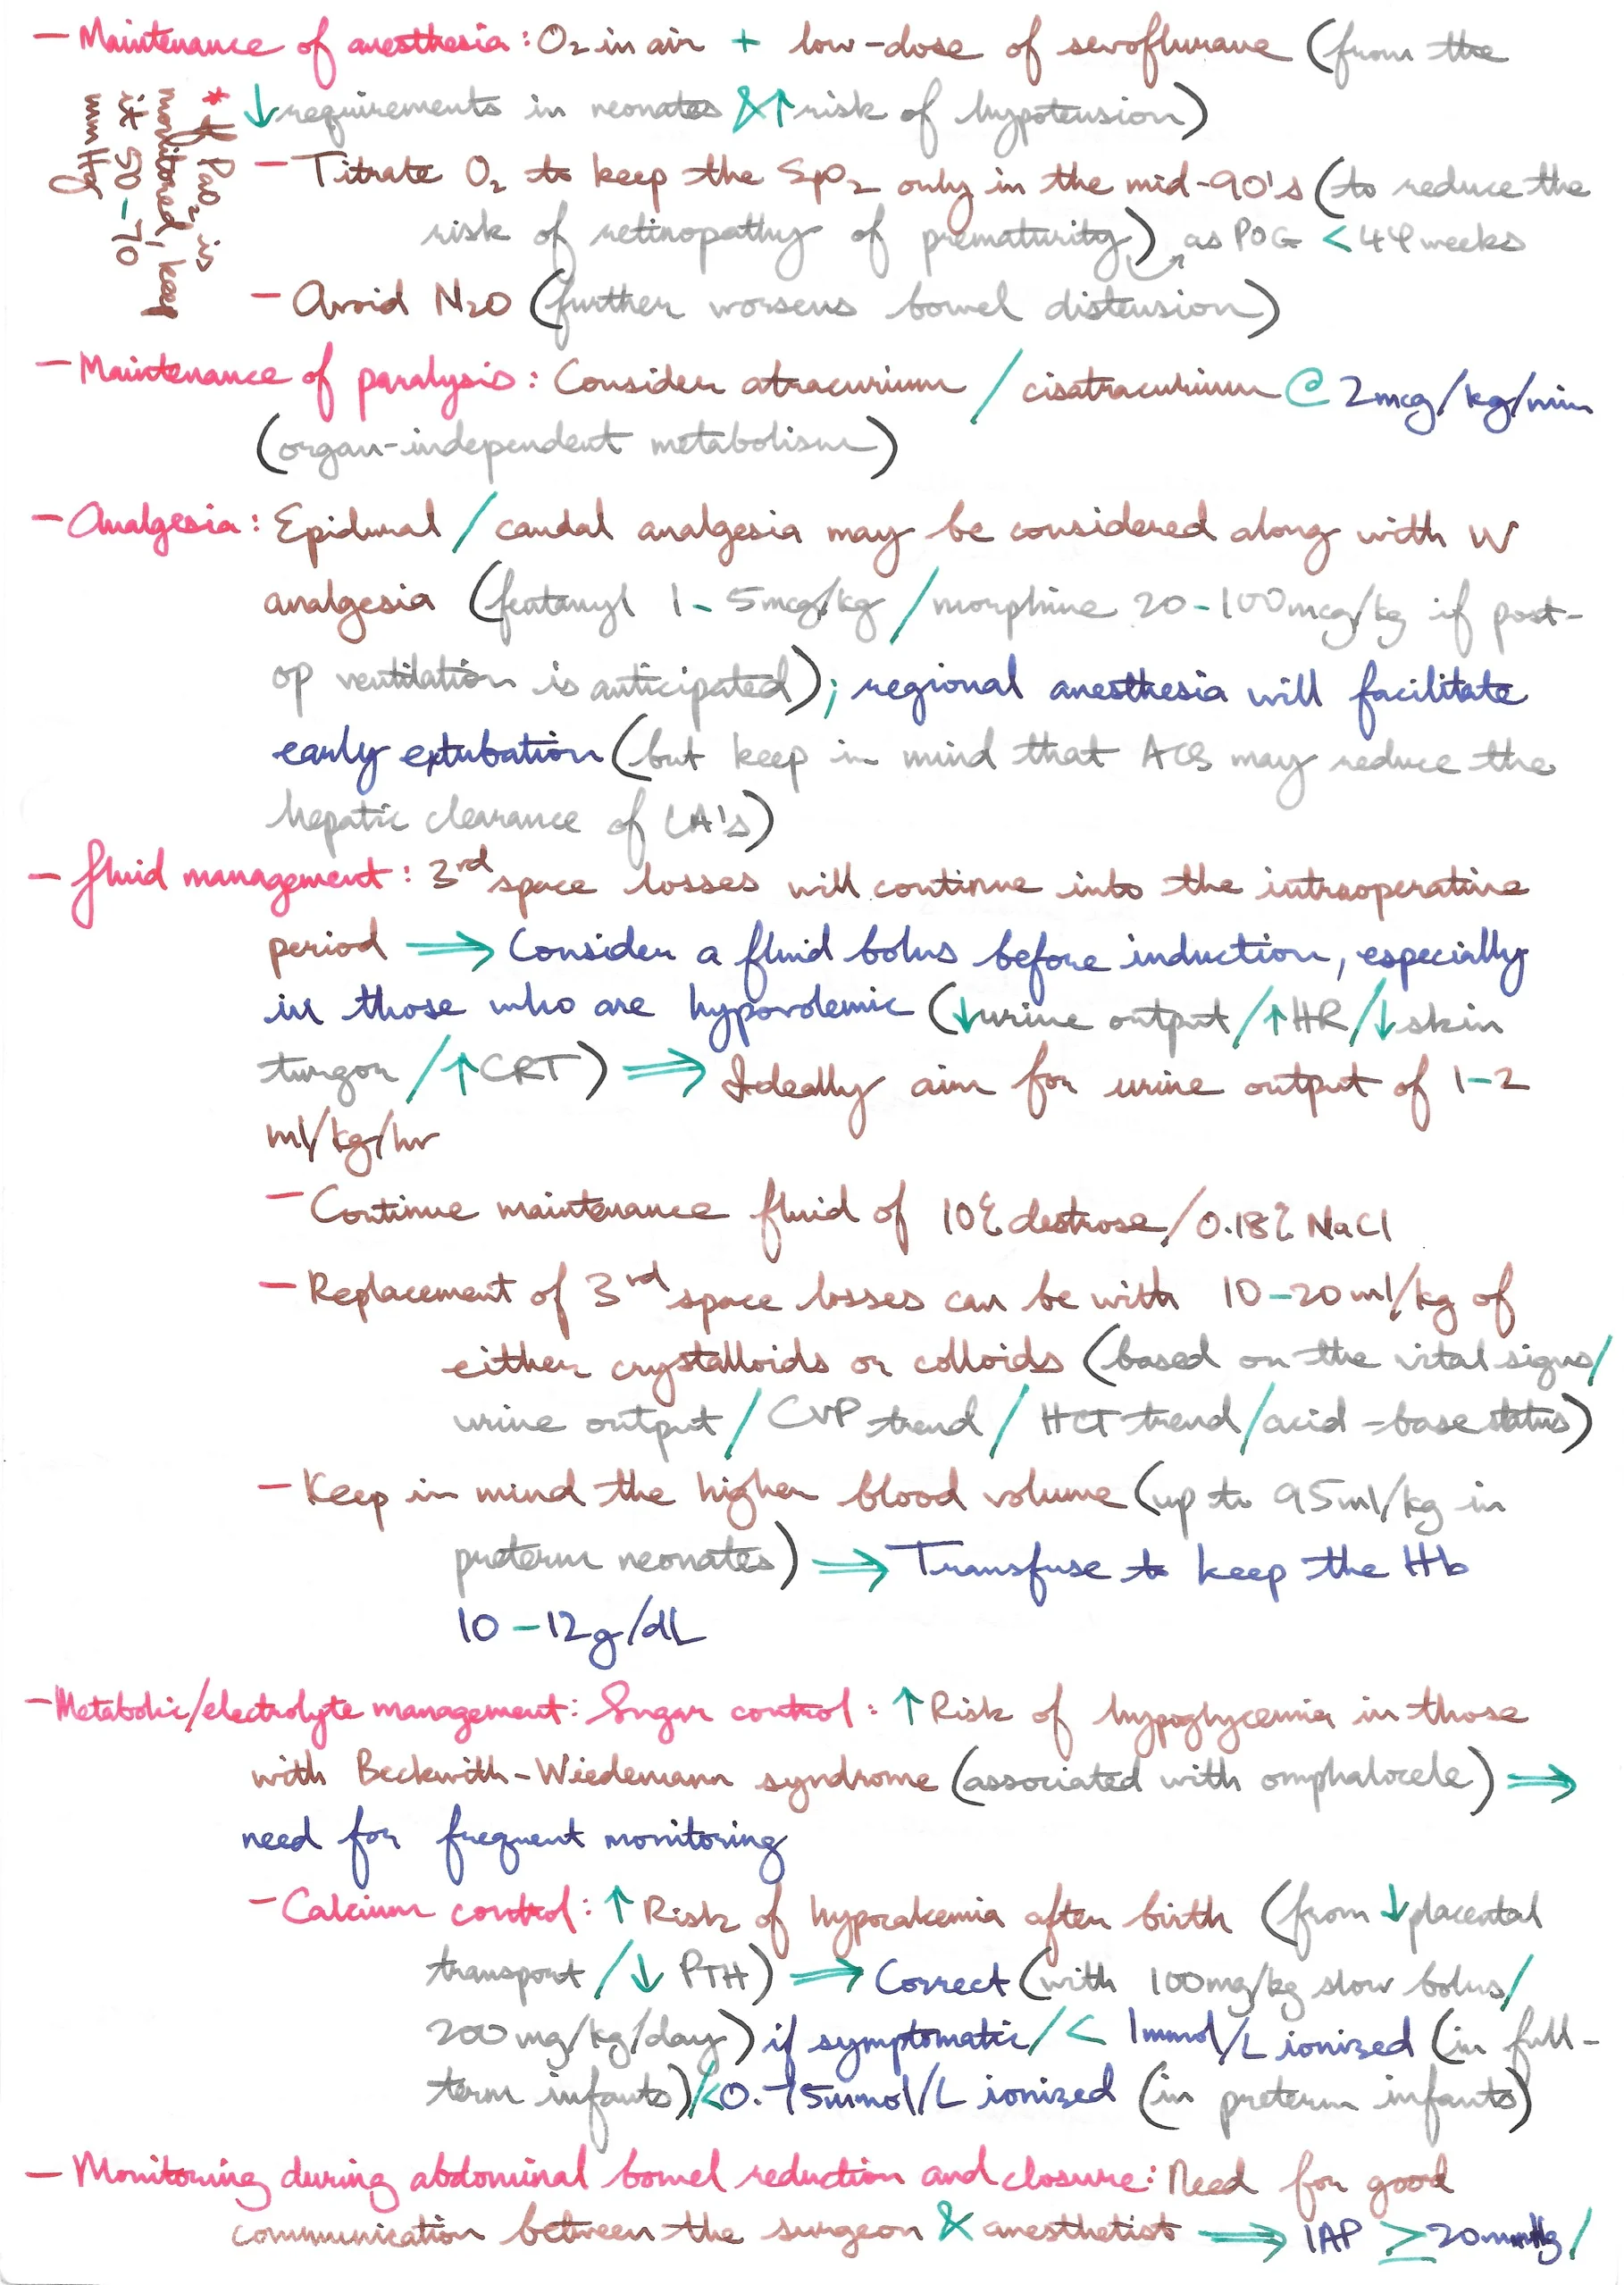 - Maintenance of anesthesia: O₂ in air + low-dose of sevoflurane (from the
↓ requirements in neonates & ↑ risk of hypotension)
* If PaO₂ is
monitored, keep
it 50-70
mmHg
- Titrate O₂ to keep the SpO₂ only in the mid-90's (to reduce the
risk of retinopathy of prematurity) as POG < 44 weeks
- Avoid N₂O (further worsens bowel distension)
- Maintenance of paralysis: Consider atracurium / cisatracurium @ 2mcg/kg/min
(organ-independent metabolism)
- Analgesia: Epidural / caudal analgesia may be considered along with IV
analgesia (fentanyl 1-5mcg/kg / morphine 20-100mcg/kg if post-
op ventilation is anticipated); regional anesthesia will facilitate
early extubation (but keep in mind that ACS may reduce the
hepatic clearance of LA's)
- Fluid management: 3rd space losses will continue into the intraoperative
period ⇒ Consider a fluid bolus before induction, especially
in those who are hypovolemic (↓ urine output / ↑ HR / ↓ skin
turgor / ↑ CRT) ⇒ Ideally aim for urine output of 1-2
ml/kg/hr
- Continue maintenance fluid of 10% dextrose / 0.18% NaCl
- Replacement of 3rd space losses can be with 10-20 ml/kg of
either crystalloids or colloids (based on the vital signs /
urine output / CVP trend / HCT trend / acid-base status)
- Keep in mind the higher blood volume (up to 95ml/kg in
preterm neonates) ⇒ Transfuse to keep the Hb
10-12g/dL
- Metabolic/electrolyte management: Sugar control: ↑ Risk of hypoglycemia in those
with Beckwith-Wiedemann syndrome (associated with omphalocele) ⇒
need for frequent monitoring
- Calcium control: ↑ Risk of hypocalcemia after birth (from ↓ placental
transport / ↓ PTH) ⇒ Correct (with 100mg/kg slow bolus /
200 mg/kg/day) if symptomatic / < 1mmol/L ionized (in full-
term infants) / <0.75mmol/L ionized (in preterm infants)
- Monitoring during abdominal bowel reduction and closure: Need for good
communication between the surgeon & anesthetist ⇒ IAP ≥ 20mmHg /